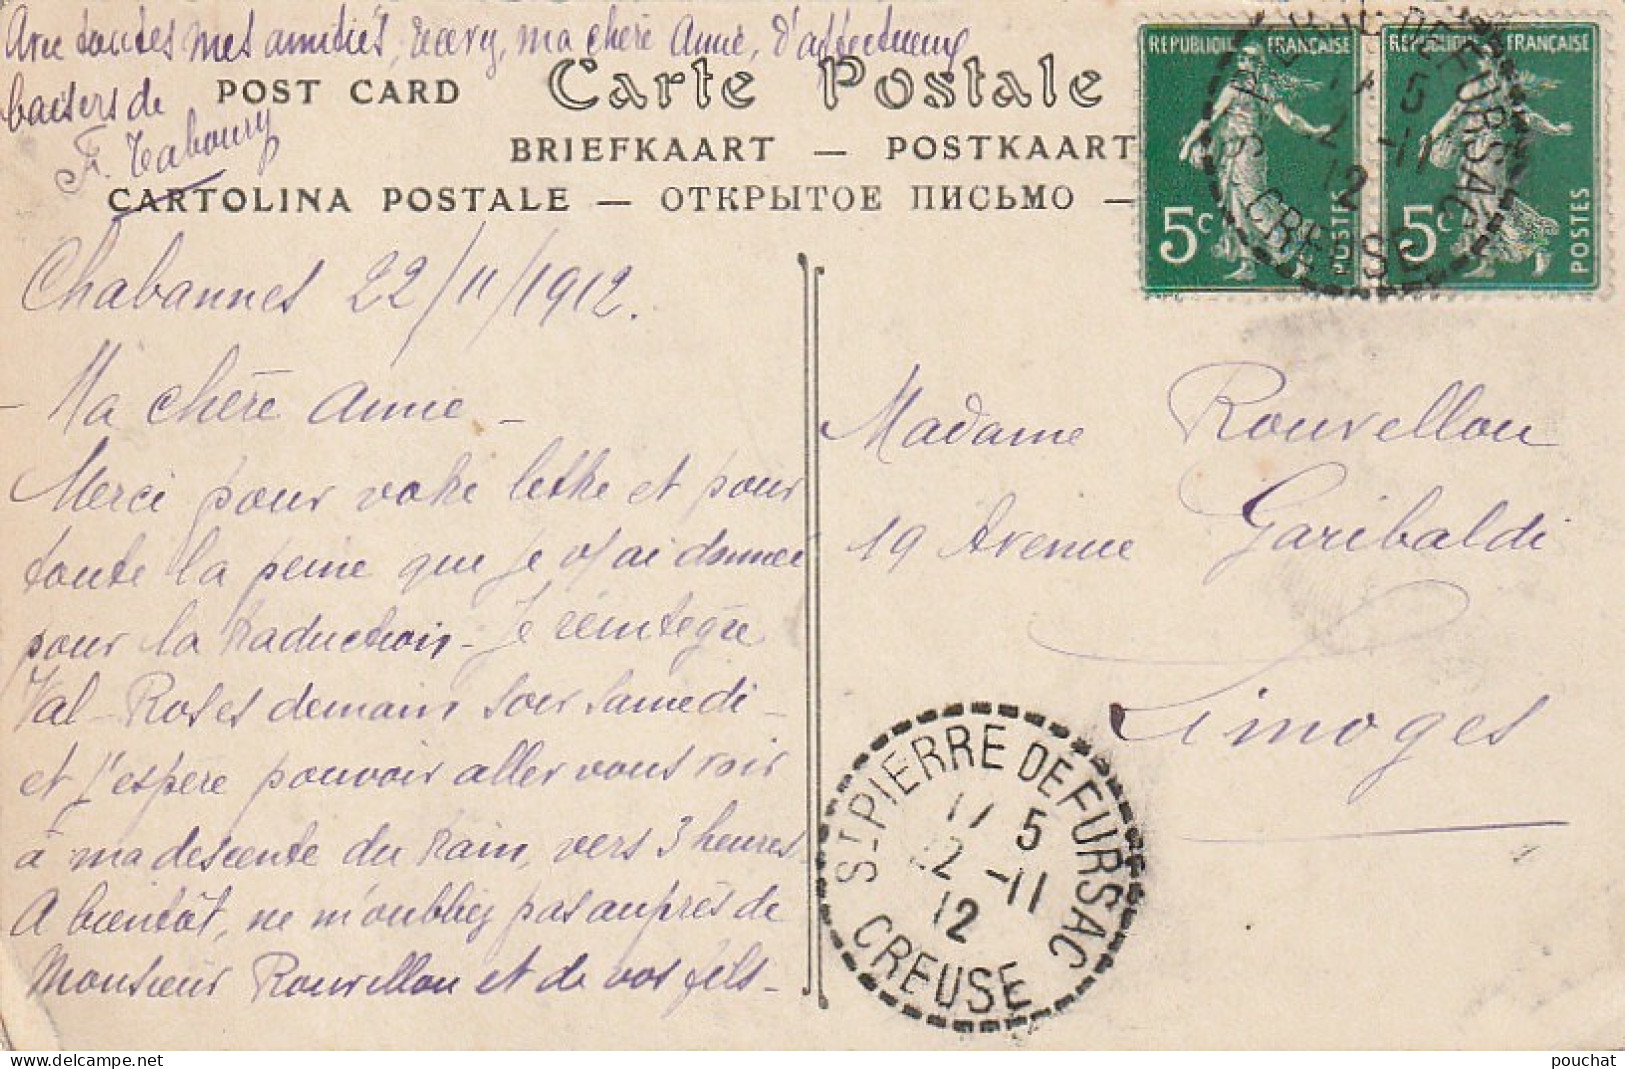 Avec toutes mes amitiés, recevez, ma chère Anne, d'affectueux
baisers de
F. Taboury
POST CARD Carte Postale
BRIEFKAART — POSTKAART
CARTOLINA POSTALE — ОТКРЫТОЕ ПИСЬМО —
REPUBLIQUE FRANÇAISE
5c POSTES
REPUBLIQUE FRANÇAISE
5c POSTES
ST PIERRE DE FURSAC
17 5
22 -11
12
CREUSE
Chabannes 22/11/1912.
- Ma chère Anne -
Merci pour votre lettre et pour
toute la peine que je v/ai donnée
pour la traduction - Je réintègre
Val-Roses demain soir samedi -
et j'espère pouvoir aller vous voir
à ma descente du train, vers 3 heures.
A bientôt, ne m'oubliez pas auprès de
Monsieur Rouvellou et de vos fils -
Madame Rouvellou
19 Avenue Garibaldi
Limoges
ST PIERRE DE FURSAC
17 5
22 -11
12
CREUSE
pouchat